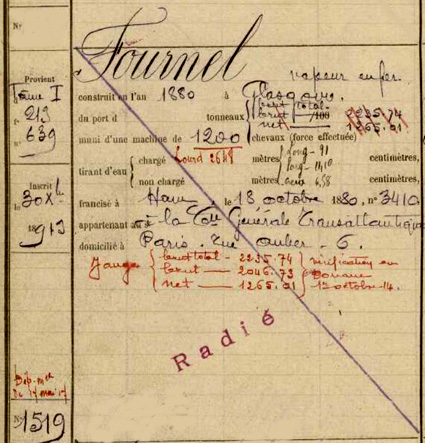 N°
Fournel
vapeur en fer.
Provient
Tome I
f° 213
n° 639
construit en l'an 1880 à Glasgow.
du port d tonneaux { brut total
brut /100 2235.74
net 1265.01
muni d'une machine de 1200 chevaux (force effectuée)
tirant d'eau { chargé Lourd mètres centimètres,
non chargé mètres centimètres,
long - 91
larg - 11,10
creux 6,58
Inscrit
le 30 Xbre
1913
francisé à Havre, le 18 octobre 1880, n° 3410
appartenant à la Cie Générale Transatlantique
domicilié à Paris. rue Auber - 6.
Jauge { brut total - 2235.74
brut — 2046.73
net — 1265.01
} vérification en
Douane
12 octobre 14.
Radié
N° 1519